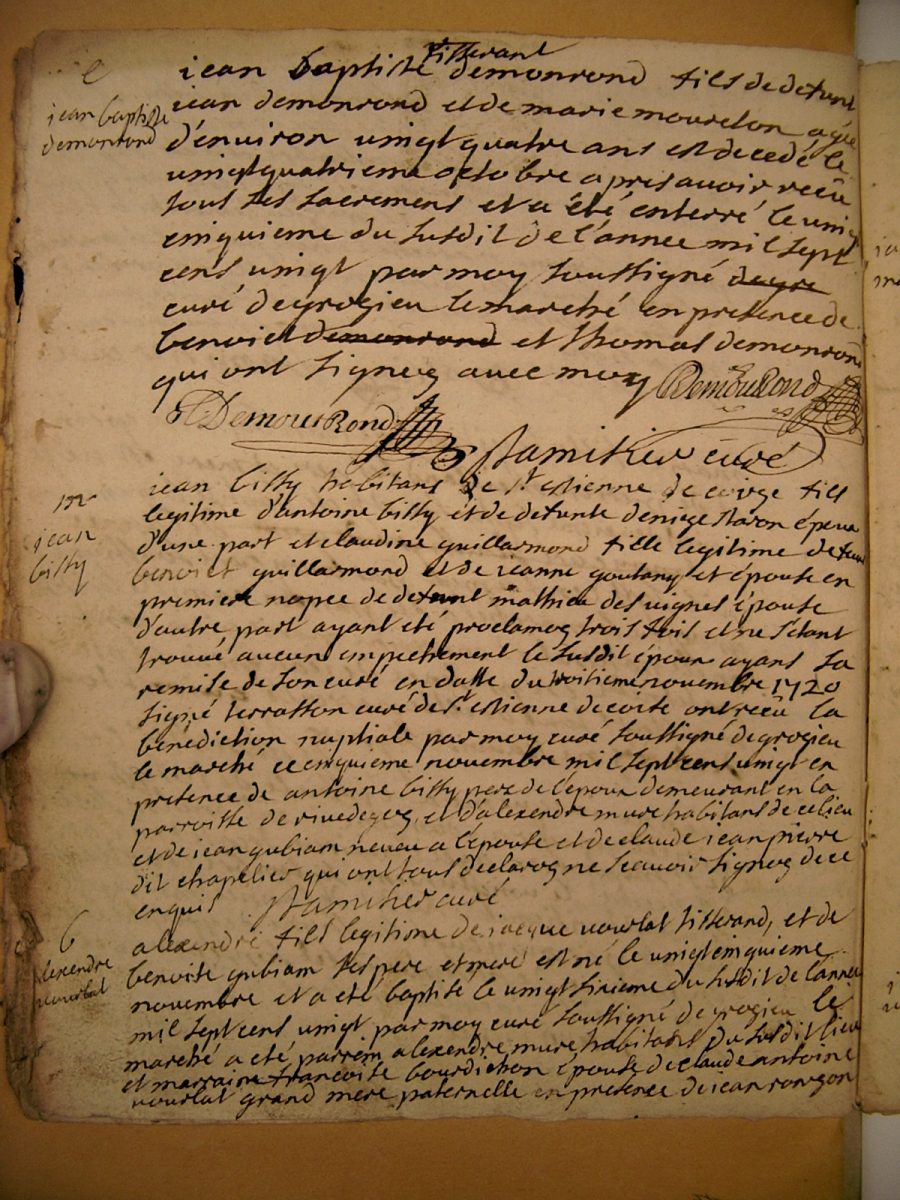 e
jean baptiste
demonrond
tisserant
jean baptiste demonrond fils de defunt
jean demonrond et de marie mourelon agée
d'environ vingt quatre ans est decedé le
vingtquatrieme octobre apris avoir recû
tous ses sacremens et a été enterré le vingt
cinquieme du susdit de l'annee mil sept
cens vingt par moy soussigné degro
curé de grogieu le marché en presence de
benoict demonrond et thomas demonrond
qui ont signez avec moy
DemouRond
DemouRond
Stamitier curé
m
jean
bissy
jean bissy habitans de st estienne de coize fils
legitime d'antoine bissy et de defunte deniege epoux
d'une part et claudine guillarmond fille legitime de feu
benoict guillarmond et de jeanne goutany et épouse en
premiere nopce de defunt mathieu des vignes épouse
d'autre part ayant été proclamez trois fois et ne s'étant
trouvé aucun empechement le susdit époux ayans sa
remise de son curé en datte du troisieme novembre 1720
signé terrasson curé de st estienne de coise ont recû la
bénediction nuptiale par moy curé soussigné de grogieu
le marché ce cinquieme novembre mil sept cens vingt en
presence de antoine bissy pere de l'epoux demeurant en la
parroisse de rivedegez, et d'alexendre mure habitans de ce lieu
et de jean gubiam neveu a l'épouse et de claude jean pierre
dit chapelier qui ont tous declarez ne scavoir signez de ce
enquis Stamitier curé
6
alexendre
vourlat
alexendre fils legitime de jacque vourlat tisserand, et de
benoite gubiam ses pere et mere est né le vingtcinquieme
novembre et a eté baptisé le vingt sixieme du susdit de l'annee
mil sept cens vingt par moy curé soussigné de grogieu le
marché a eté parrein alexendre mure habitans du susdit lieu
et marraine francoise bourdichon épouse de claude antoine
vourlat grand mere paternelle en presence de jean rongon